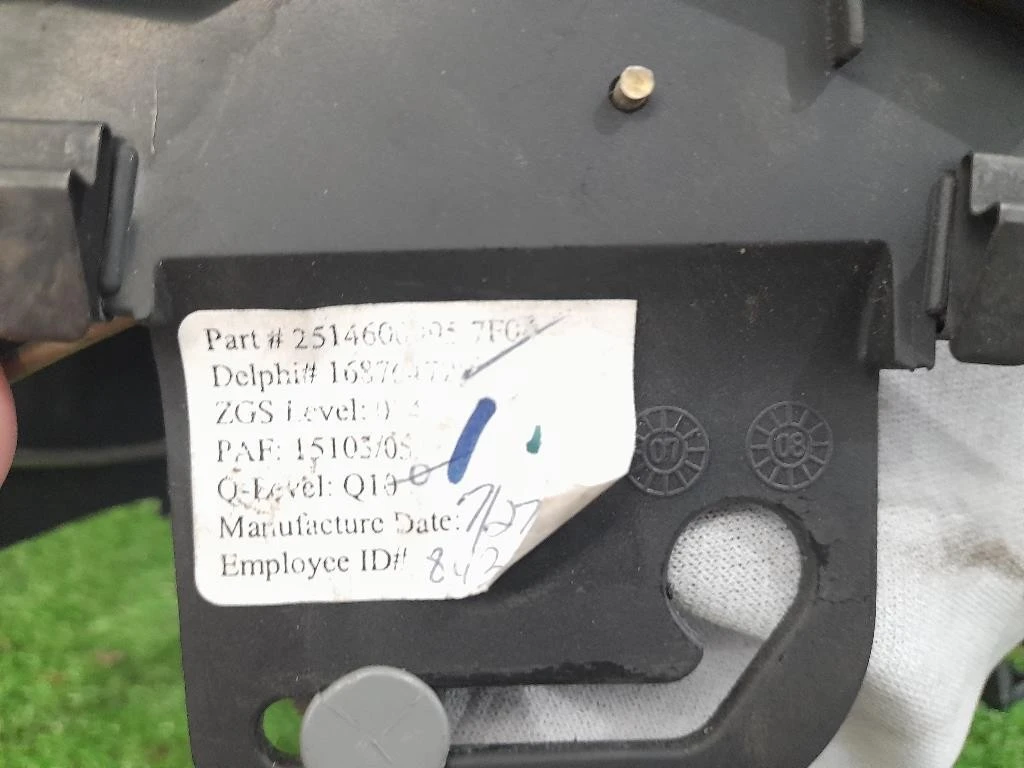 Part #
Delphi#
ZGS Level:
PAF: 15103/05
Q-Level: Q10
Manufacture Date: 7/27
Employee ID# 843
07
03